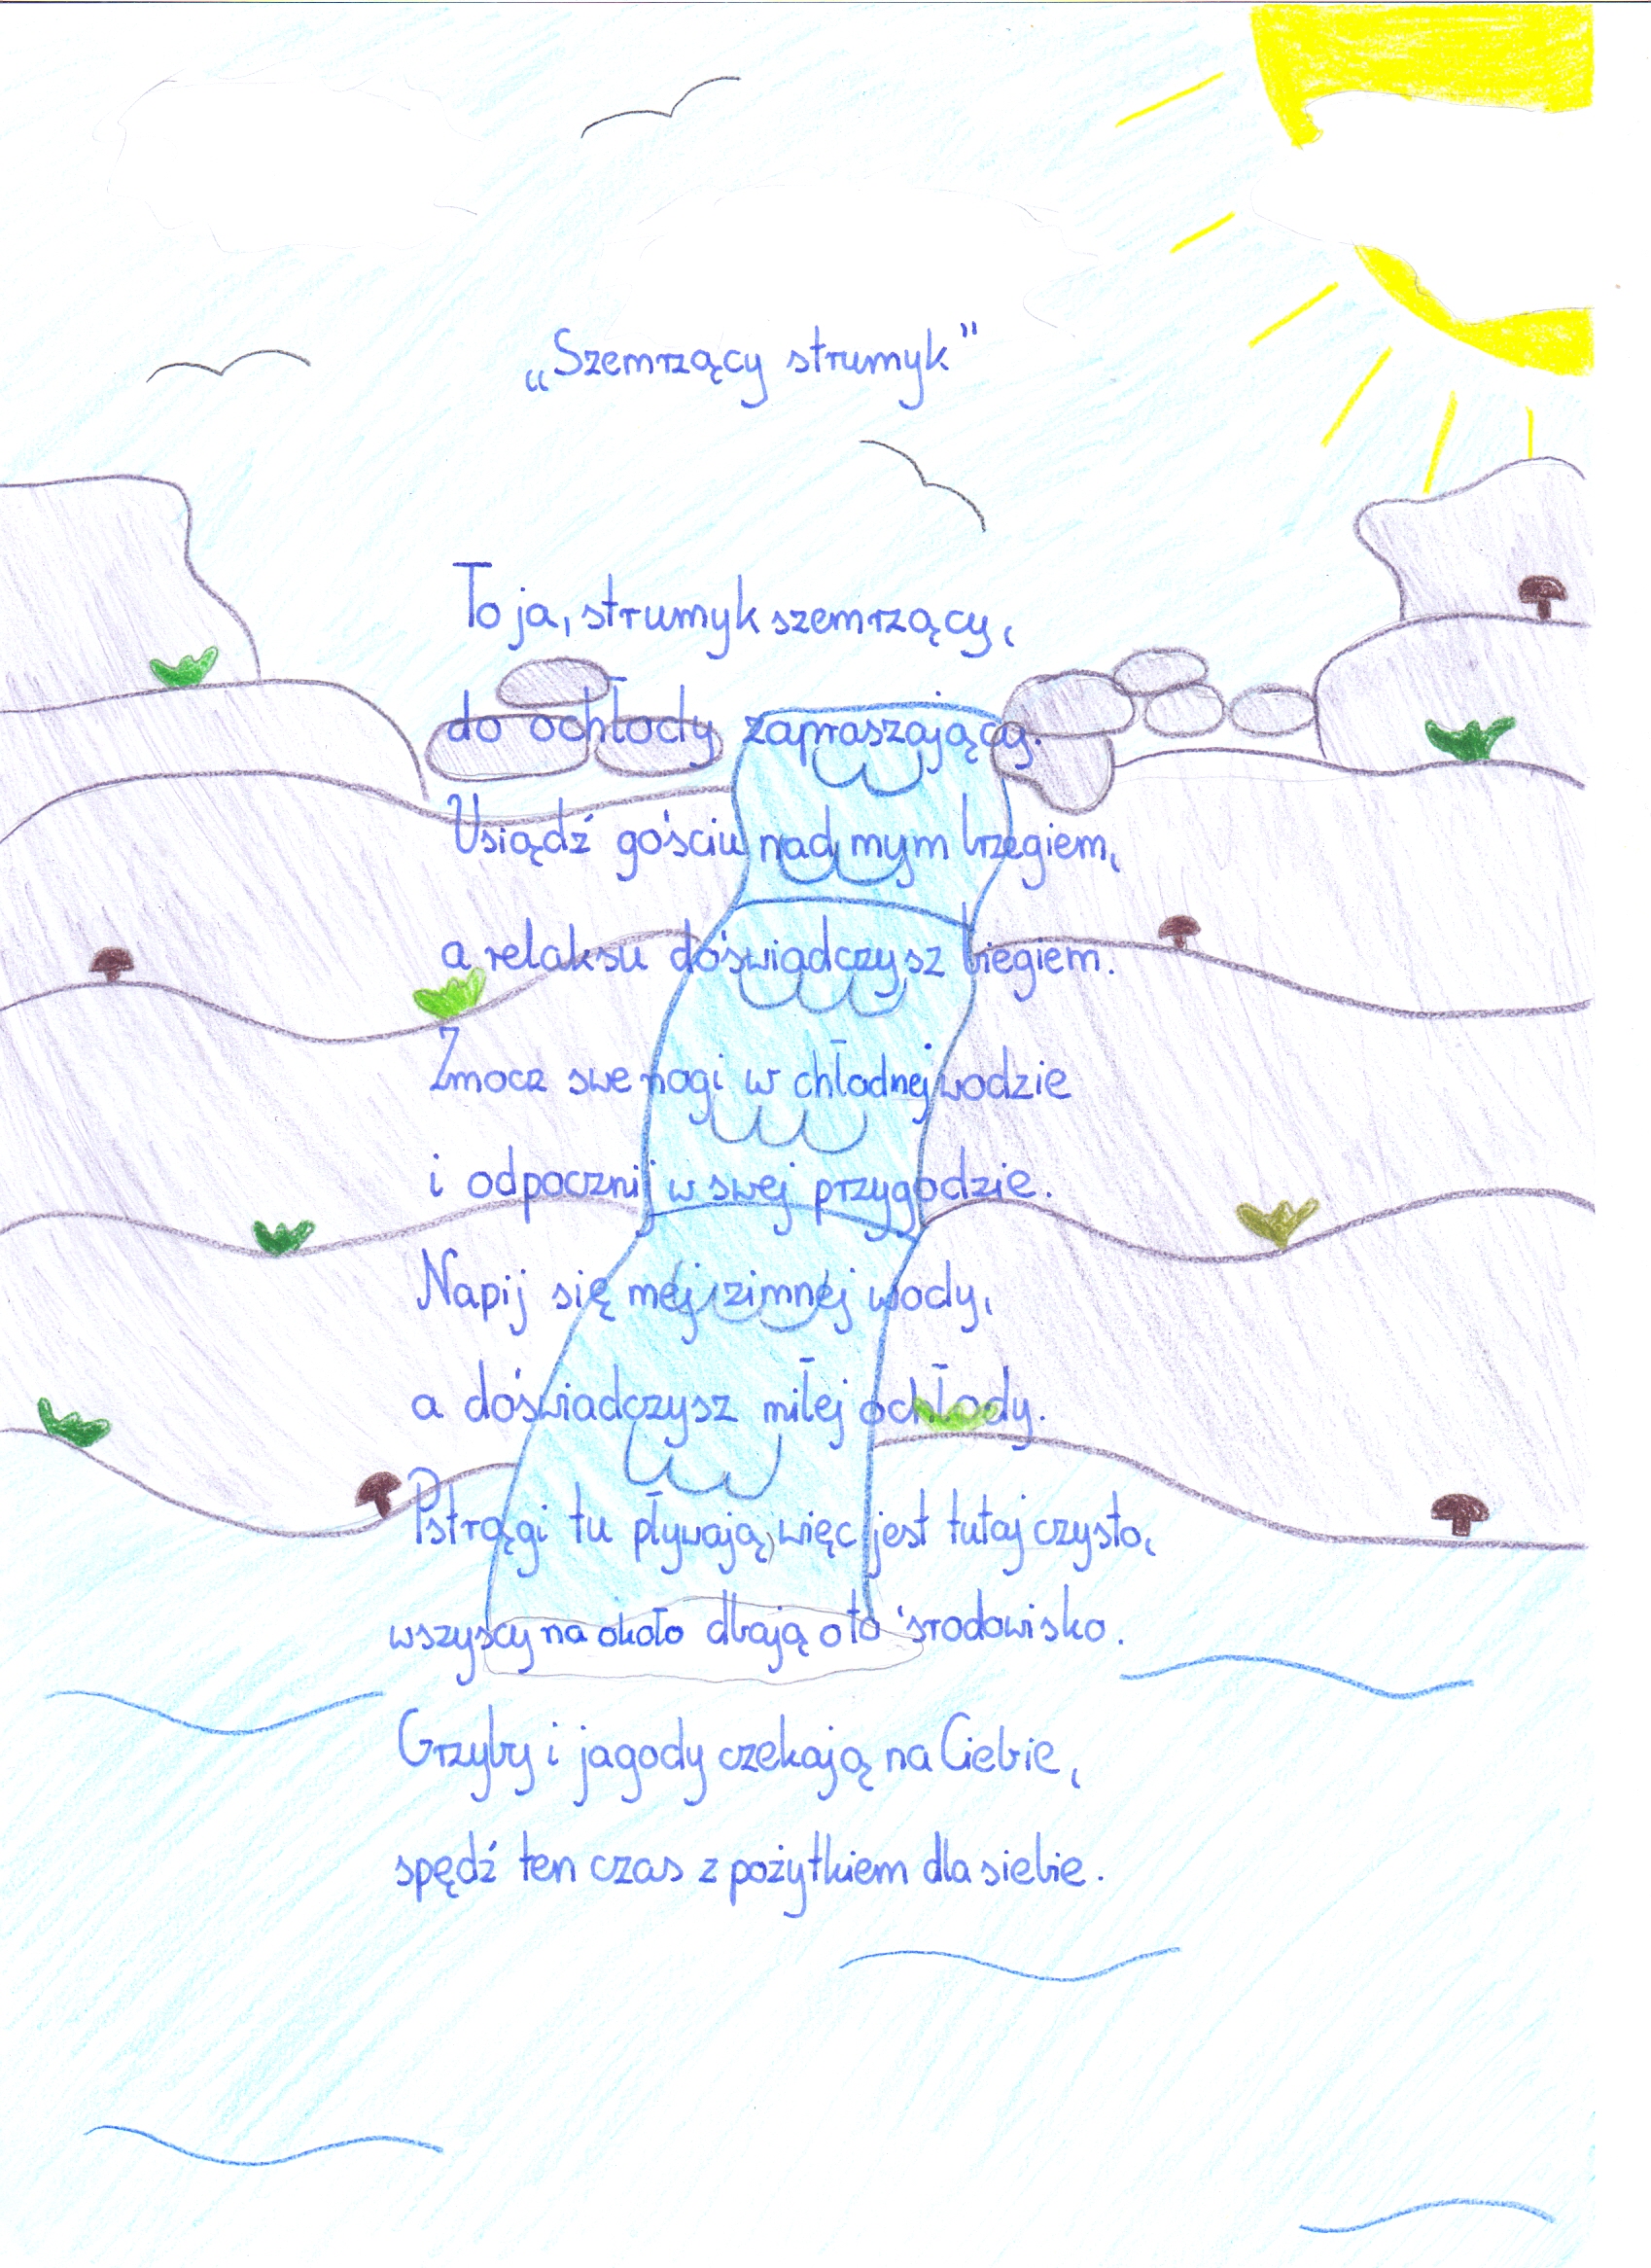 „Szemrzący strumyk”
To ja, strumyk szemrzący,
do ochłody zapraszający.
Usiądź gościu nad mym brzegiem,
a relaksu doświadczysz biegiem.
Zmocz swe nogi w chłodnej wodzie
i odpocznij w swej przygodzie.
Napij się mej zimnej wody,
a doświadczysz miłej ochłody.
Pstrągi tu pływają, więc jest tutaj czysto,
wszyscy na około dbają o to środowisko.
Grzyby i jagody czekają na Ciebie,
spędź ten czas z pożytkiem dla siebie.